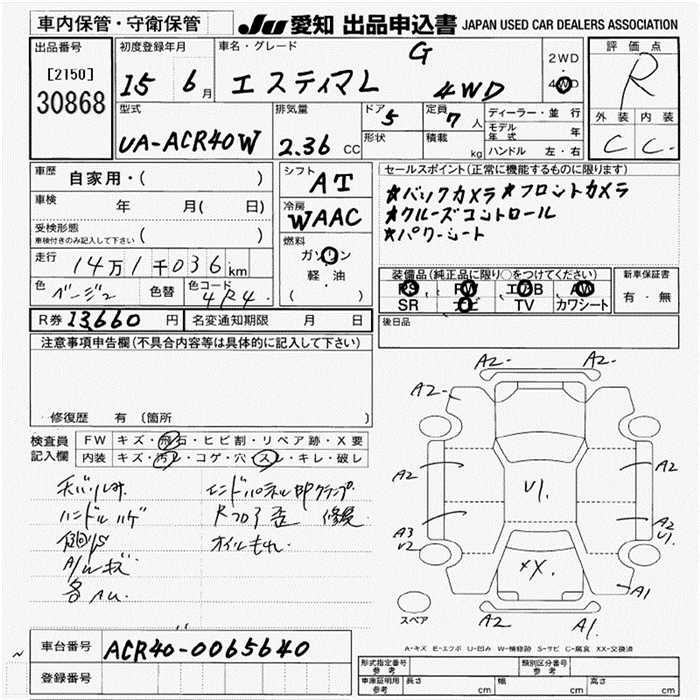 車内保管・守衛保管 JU 愛知 出品申込書 JAPAN USED CAR DEALERS ASSOCIATION
出品番号 初度登録年月 車名・グレード G 2WD 評価点
[2150] 15 6月 エスティマL 4WD 4WD R
30868
型式 排気量 ドア 5 定員 7人 ディーラー・並行 外装 内装
UA-ACR40W 2.36 CC 形状 積載 kg モデル年式 年 C C
ハンドル 左・右
車歴 自家用・( ) シフト AT セールスポイント(正常に機能するものに限ります)
車検 年 月( 日) 冷房 WAAC ★バックカメラ★フロントカメラ
★クルーズコントロール
受検形態 ( ) 燃料 ★パワーシート
車検付きのみ記入して下さい ガソリン
走行 14万1千036km 軽・油
色 ベージュ 色替 色コード 4R4 ( )
装備品(純正品に限り○をつけてください) 新車保証書
PS PW エアB AW 有・無
SR ナビ TV カワシート
R券 13,660 円 名変通知期限 月 日 後日品
注意事項申告欄(不具合内容等は具体的に記入して下さい)
修復歴 有 (箇所 )
検査員 FW キズ・飛石・ヒビ割・リペア跡・X要
記入欄 内装 キズ・汚レ・コゲ・穴・スレ・キレ・破レ
ハンドルハゲ Rフロア歪 修復
A/Wキズ オイルもれ
A2 A2
A2 A2
A2 A2
U1.
A3 A2
U2 U1.
XX.
A1
A2 A1.
スペア
A-キズ E-エクボ U-凹み W-補修跡 S-サビ C-腐食 XX-交換済
車台番号 ACR40-0065640
登録番号
形式指定番号 参考 類別区分番号 参考
車庫証明用 参考 長さ cm 幅 cm 高さ cm